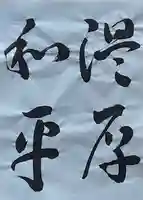 温厚
和平